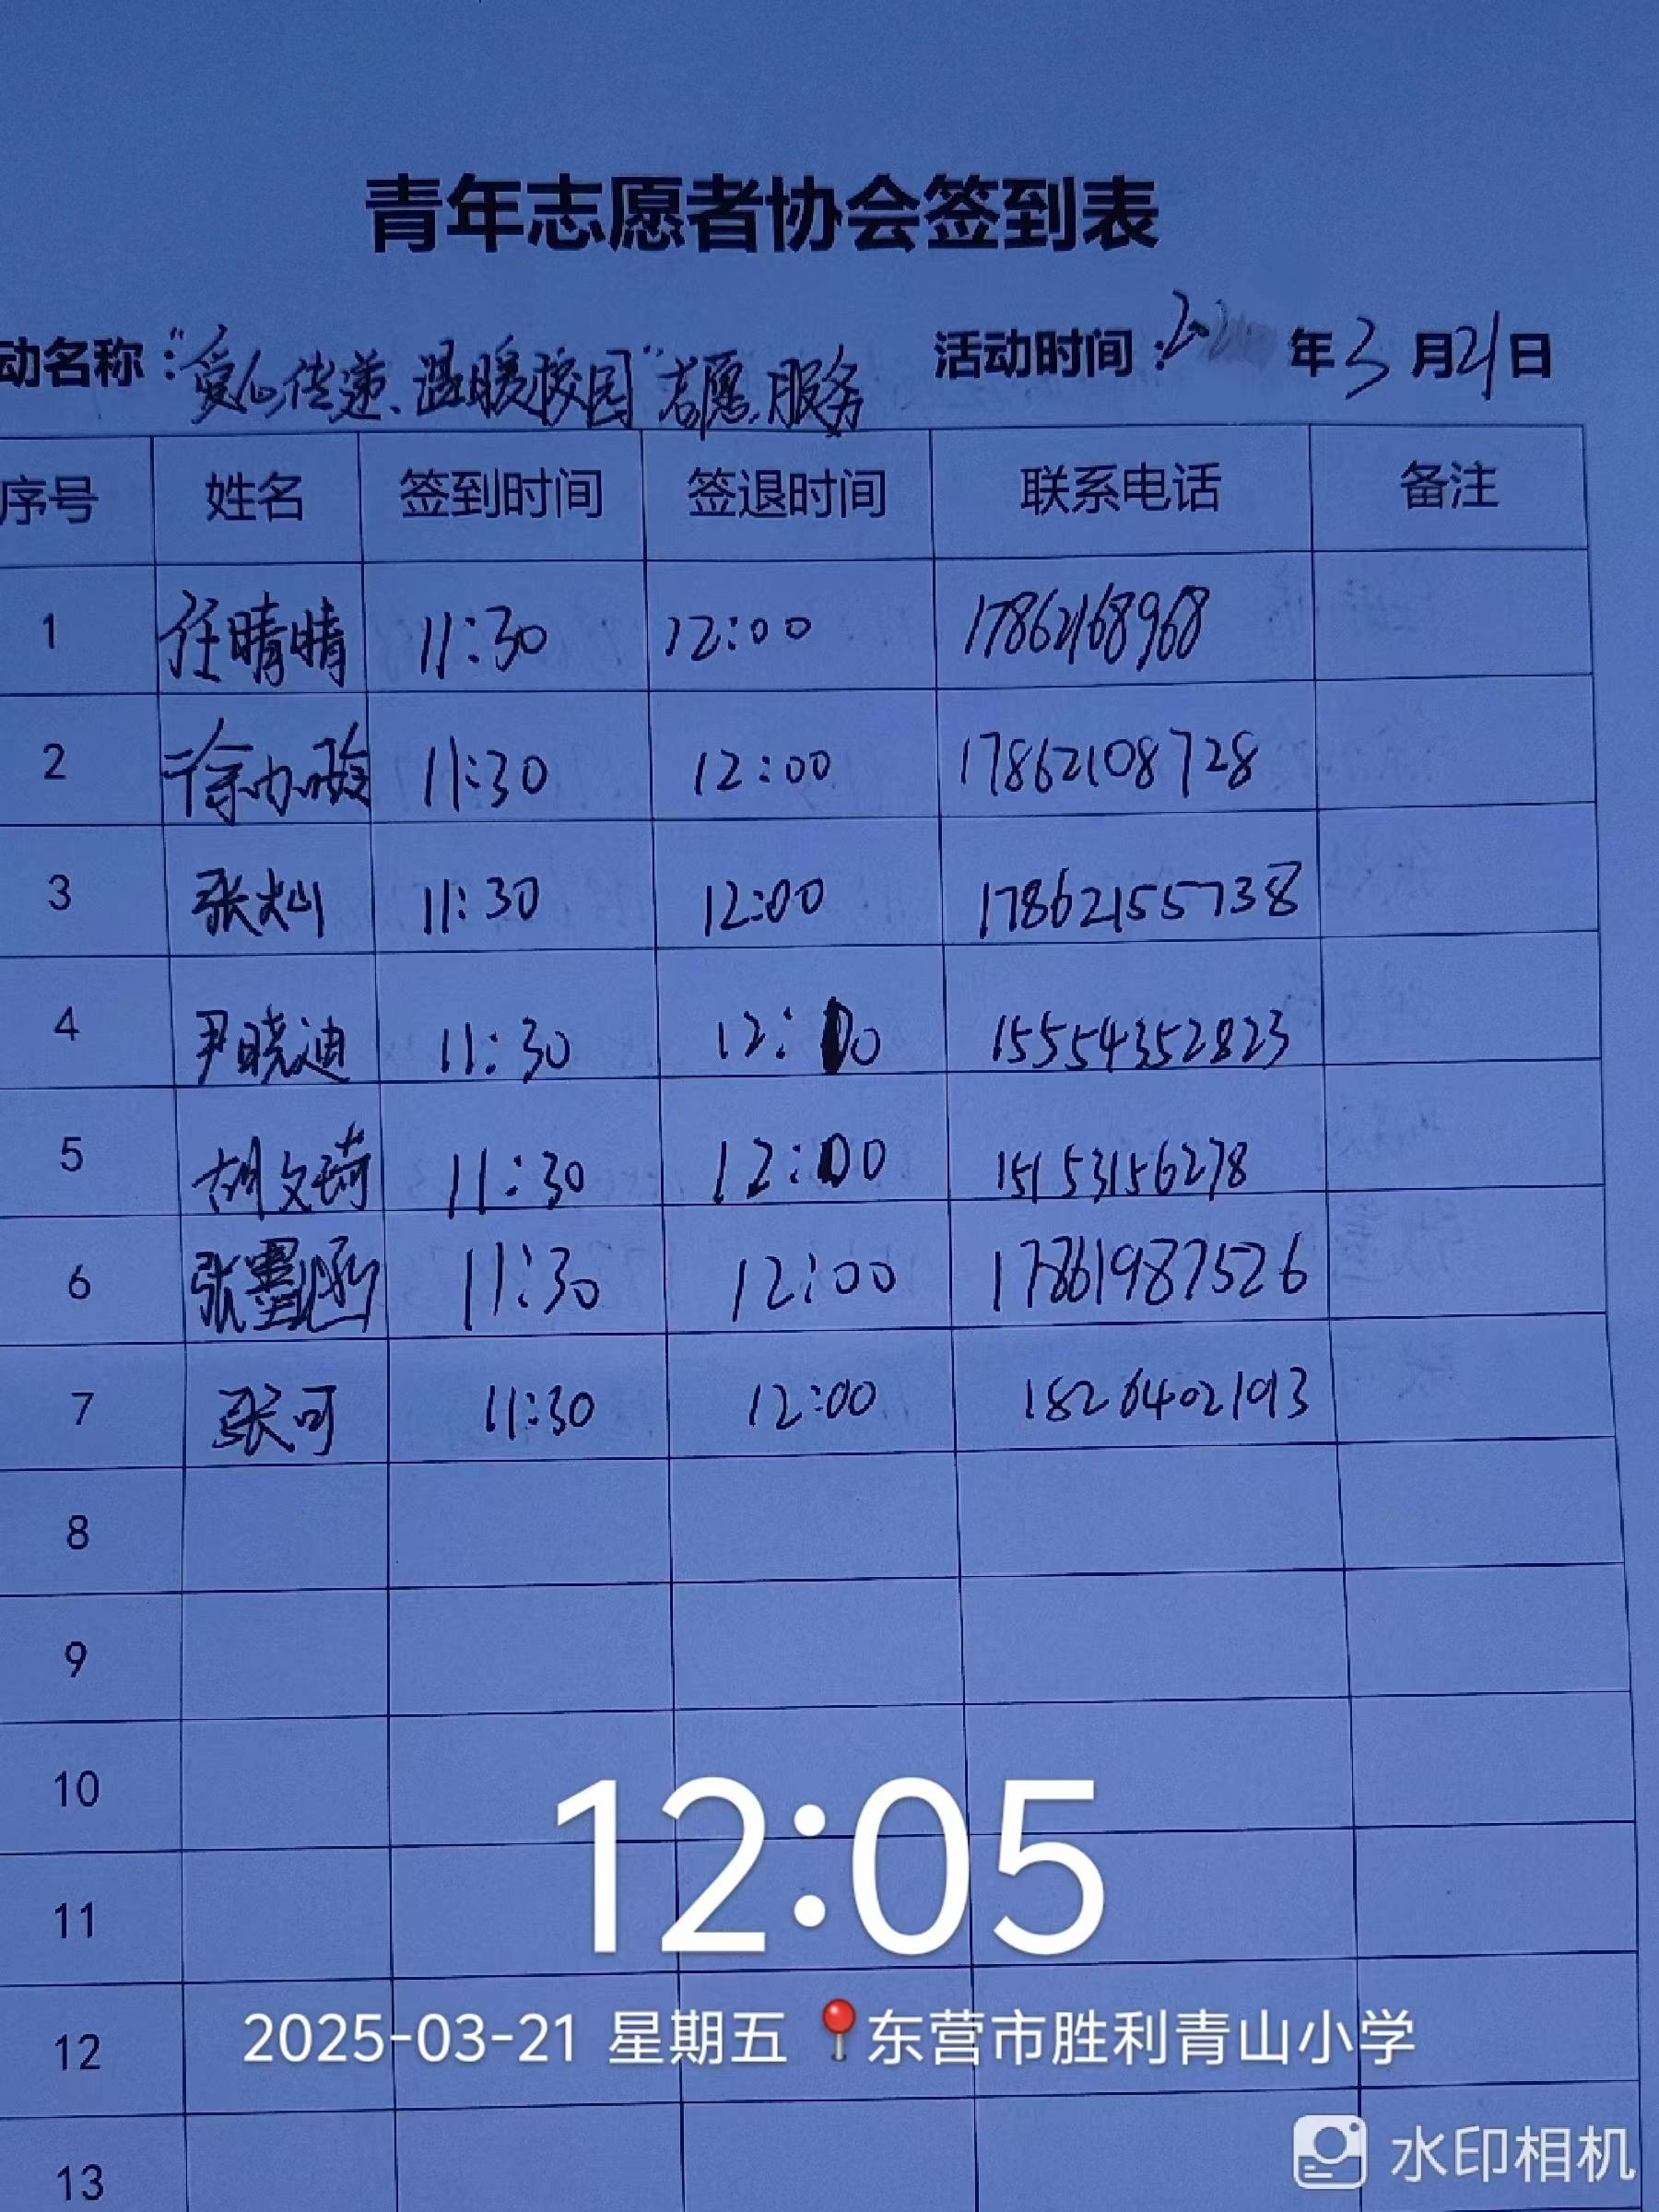 青年志愿者协会签到表
动名称:“爱心传递、温暖校园”志愿服务 活动时间:202 年3月21日
序号 姓名 签到时间 签退时间 联系电话 备注
1 任晴晴 11:30 12:00 17862168968
2 徐 11:30 12:00 17862108728
3 张灿 11:30 12:00 17862155738
4 尹晓迪 11:30 12:00 15554352823
5 胡文琦 11:30 12:00 15153156278
6 张 涵 11:30 12:00 17861987526
7 张可 11:30 12:00 18264021913
8
9
10
11
12
13
12:05
2025-03-21 星期五 东营市胜利青山小学
水印相机